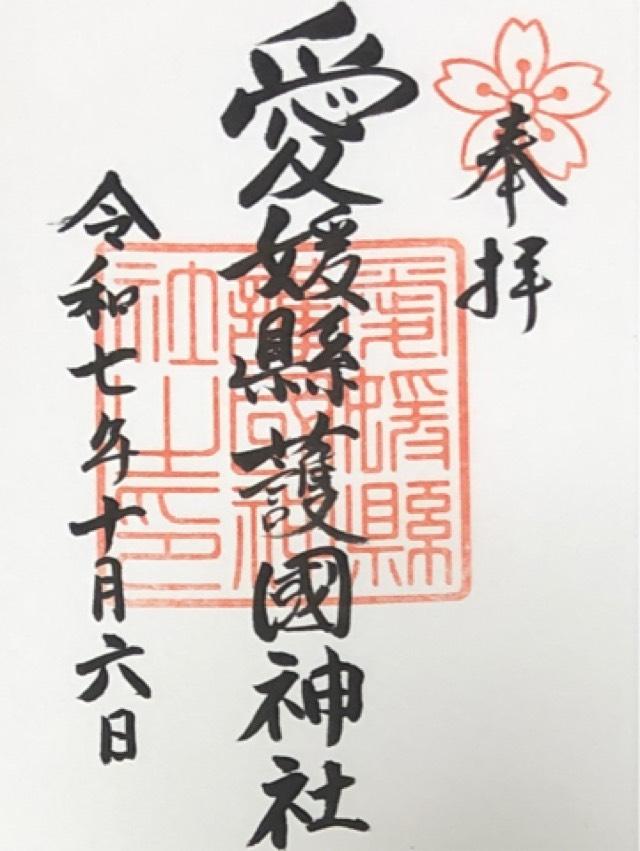 奉拝
愛媛縣護國神社
愛媛縣
護國神
社之印
令和七年十月六日